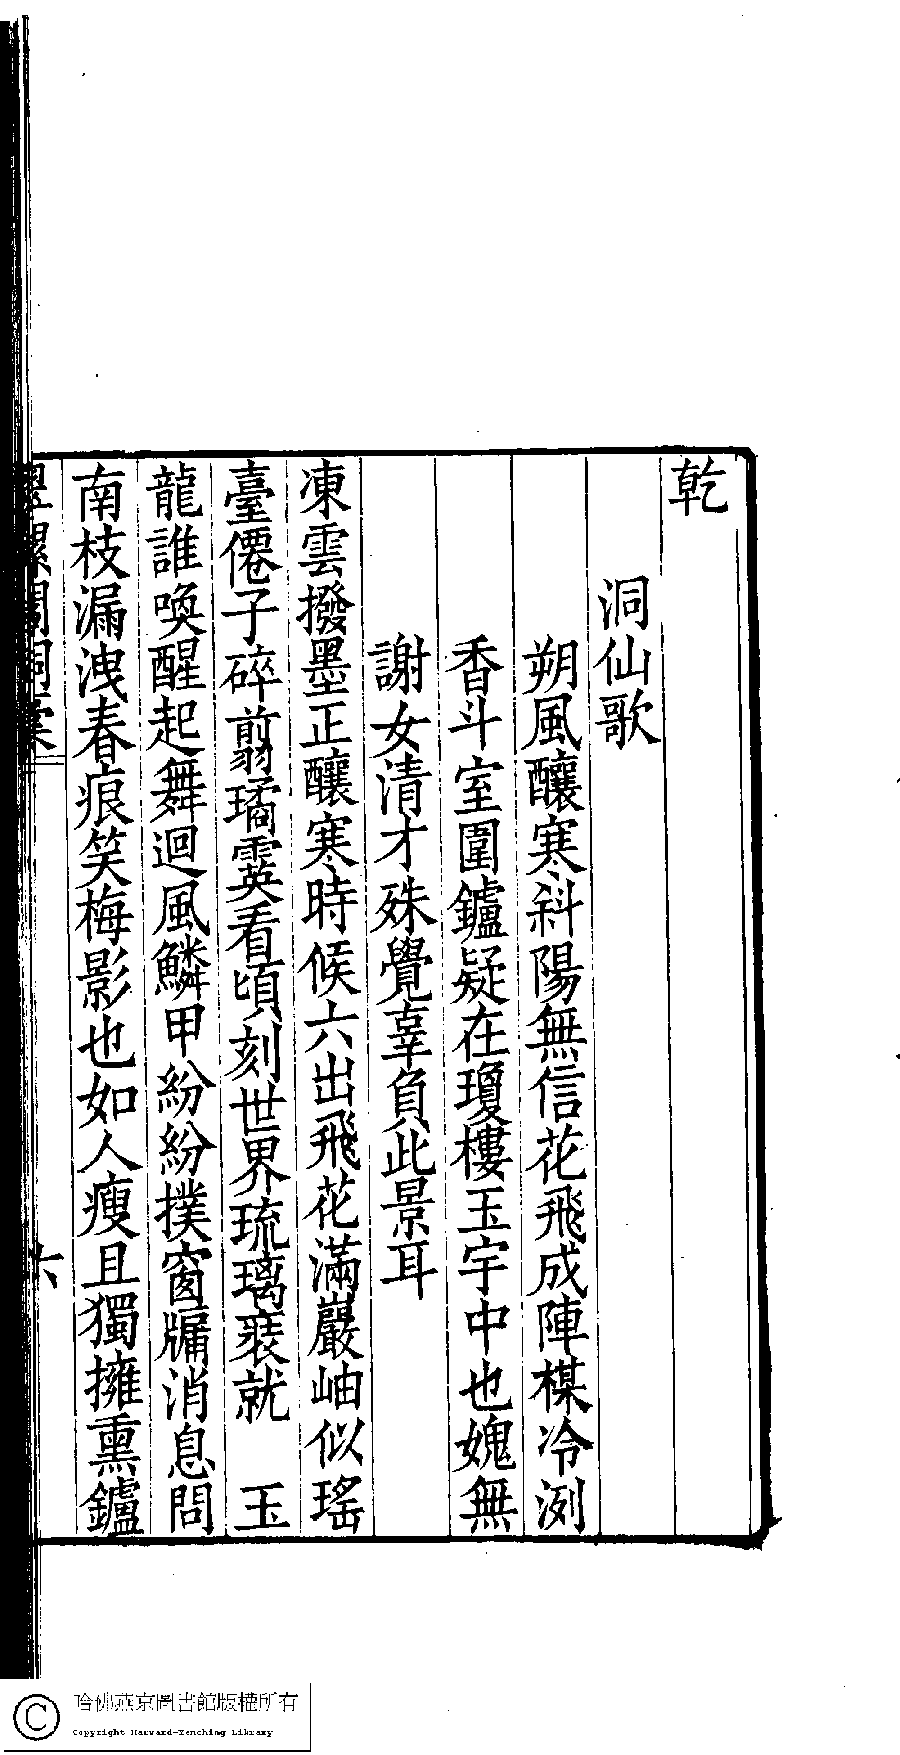 乾
洞仙歌
朔風釀寒斜陽無信花飛成陣楳冷洌
香斗室圍鑪疑在瓊樓玉宇中也媿無
謝女清才殊覺辜負此景耳
凍雲撥墨正釀寒時候六出飛花滿巖岫似瑤
臺僊子碎翦璚霙看頃刻世界琉璃裝就　玉
龍誰喚醒起舞迴風鱗甲紛紛撲窗牖消息問
南枝漏洩春痕笑梅影也如人瘦且獨擁熏鑪
翠螺閣詞稾
六
哈佛燕京圖書館版權所有
Copyright Harvard-Yenching Library